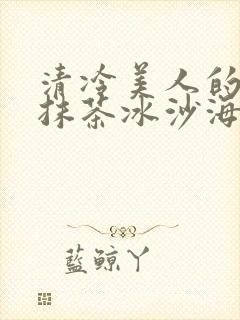 清冷美人的
抹茶冰沙海
藍鯨丫